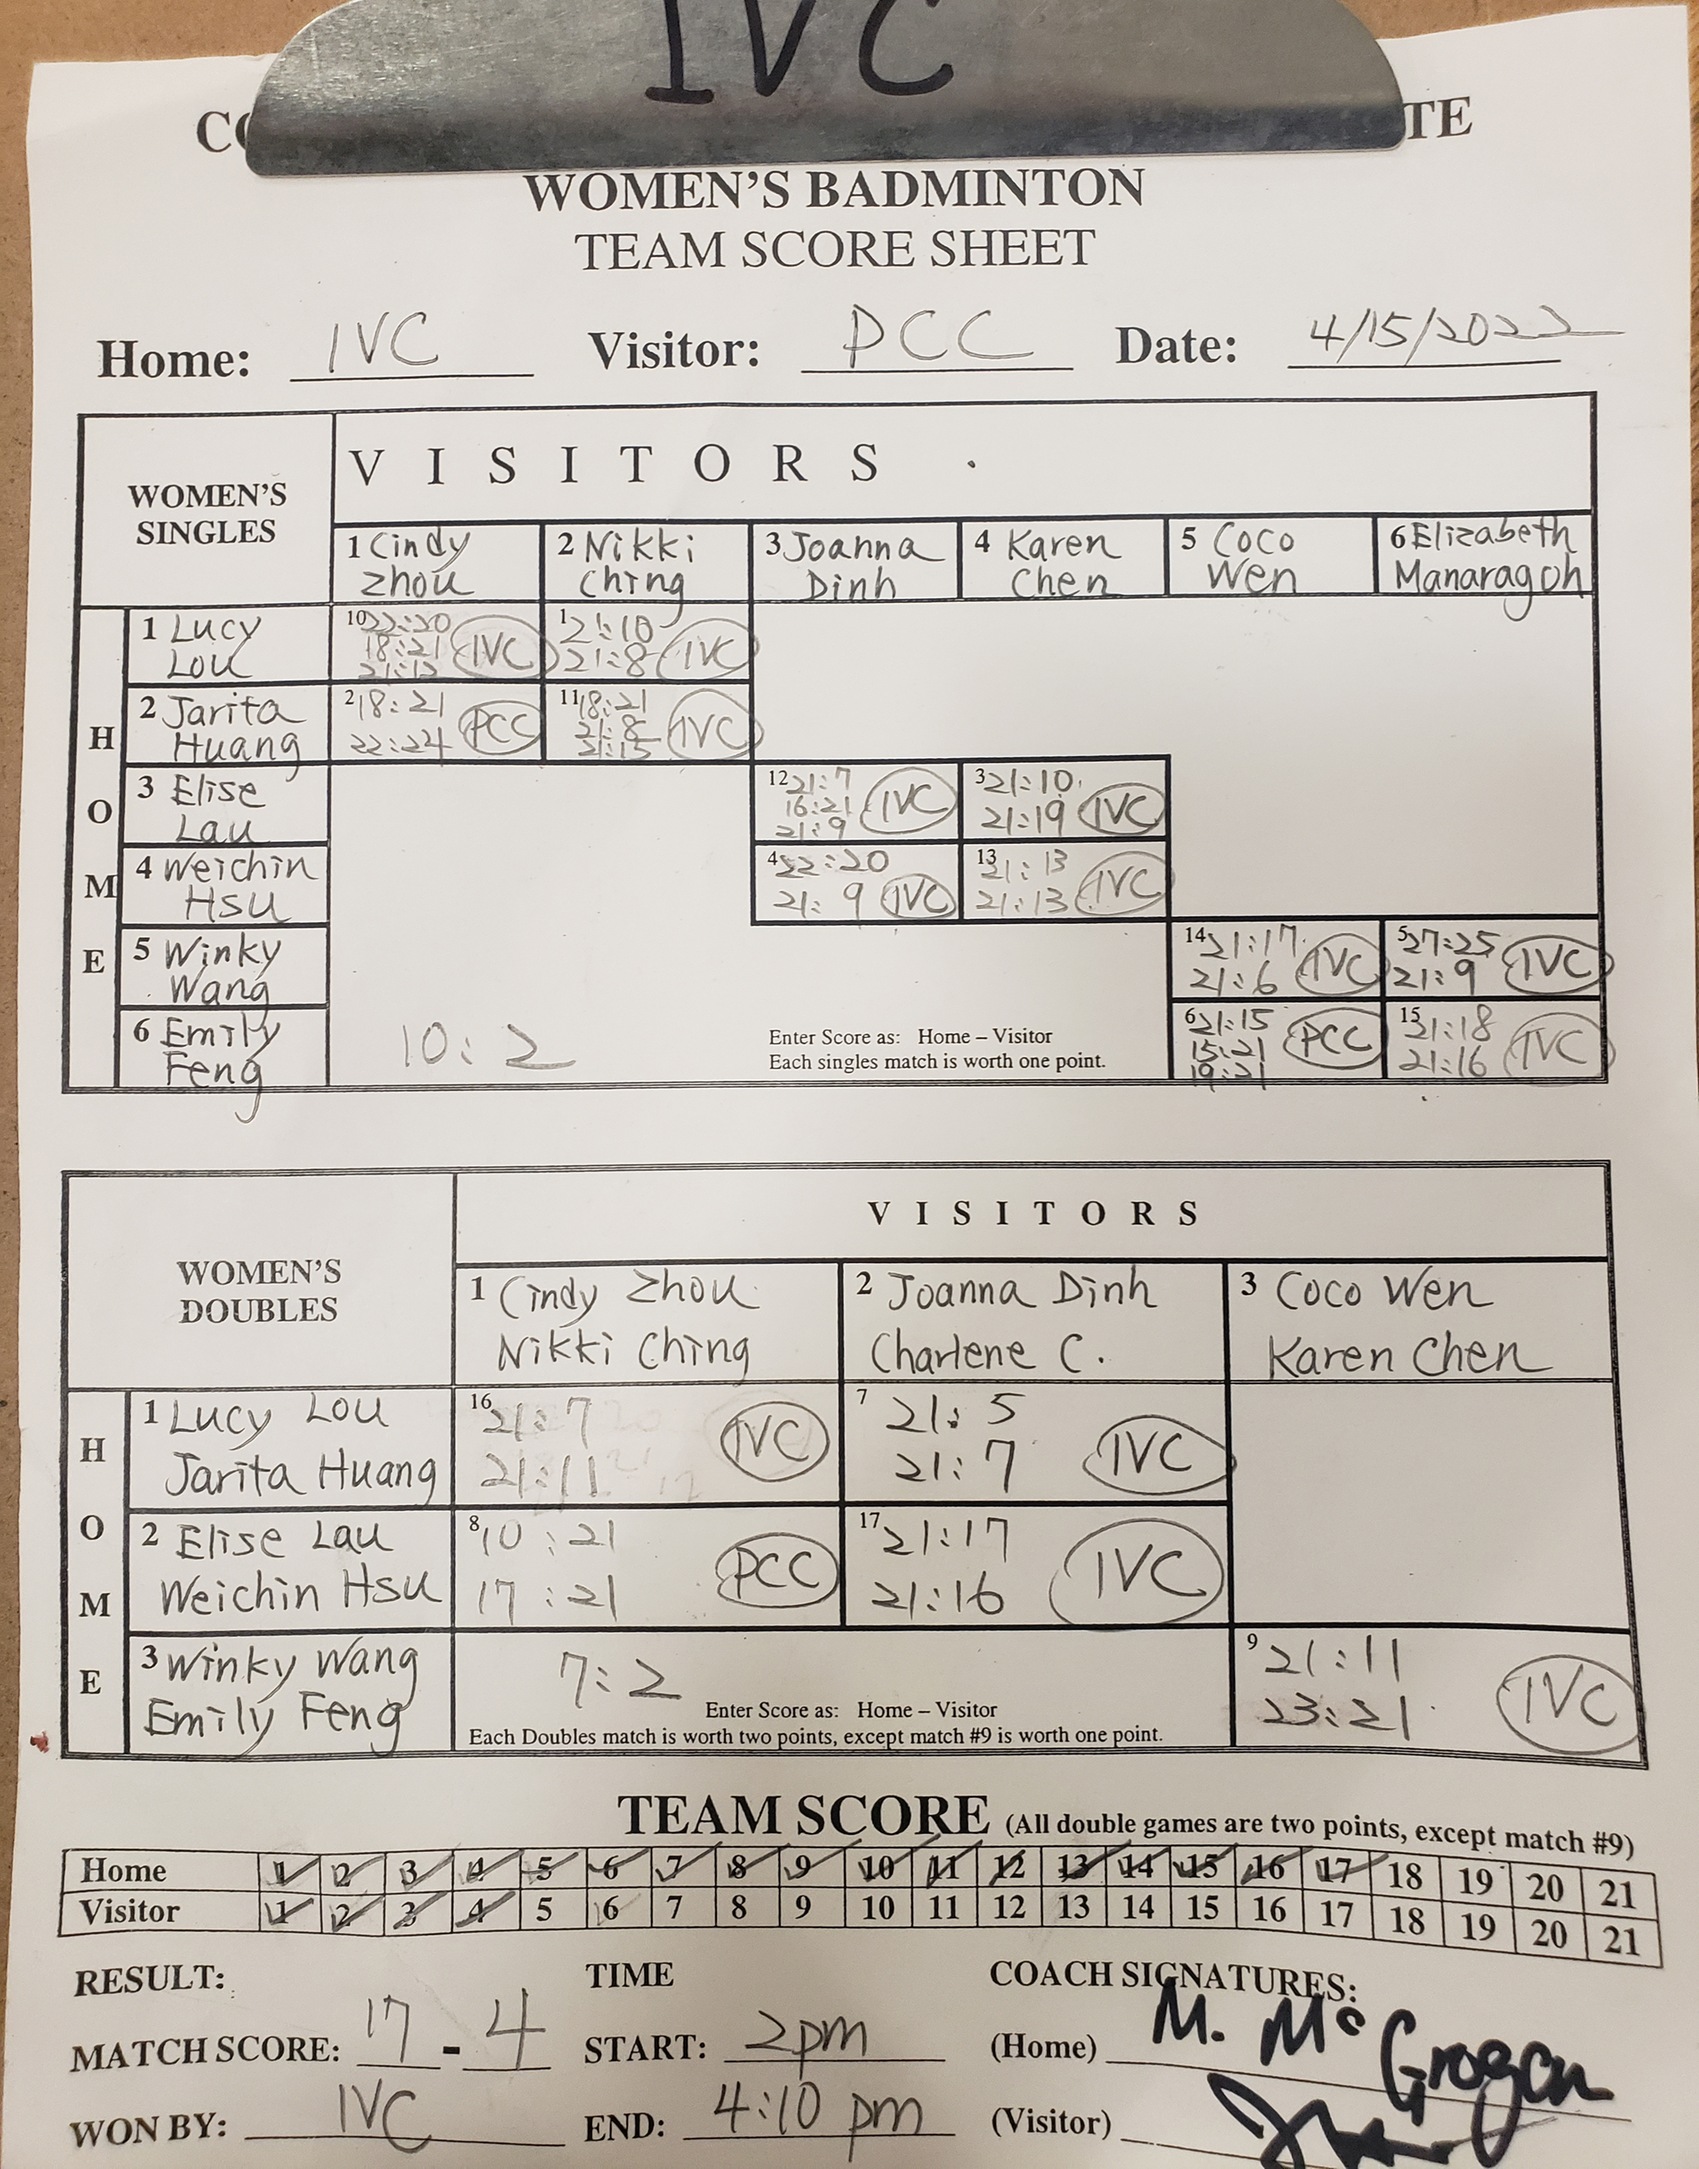 IVC
WOMEN'S BADMINTON
TEAM SCORE SHEET
Home: IVC Visitor: PCC Date: 4/15/2022
WOMEN'S
SINGLES
VISITORS
1 Cindy
Zhou
2 Nikki
Ching
3 Joanna
Dinh
4 Karen
Chen
5 Coco
Wen
6 Elizabeth
Manaragoh
HOME
1 Lucy
Lou
10 22:20
18:21
21:12
IVC
1 21:10
21:8
IVC
2 Jarita
Huang
2 18:21
22:24
PCC
11 18:21
21:8
21:15
IVC
3 Elise
Lau
12 21:7
16:21
21:9
IVC
3 21:10
21:19
IVC
4 Weichin
Hsu
4 22:20
21:9
IVC
13 21:13
21:13
IVC
5 Winky
Wang
14 21:17
21:6
IVC
5 27:25
21:9
IVC
6 Emily
Feng
10:2
Enter Score as: Home – Visitor
Each singles match is worth one point.
6 21:15
15:21
19:21
PCC
15 21:18
21:16
IVC
WOMEN'S
DOUBLES
VISITORS
1 Cindy Zhou
Nikki Ching
2 Joanna Dinh
Charlene C.
3 Coco Wen
Karen Chen
HOME
1 Lucy Lou
Jarita Huang
16 21:7
21:11
IVC
7 21:5
21:7
IVC
2 Elise Lau
Weichin Hsu
8 10:21
17:21
PCC
17 21:17
21:16
IVC
3 Winky Wang
Emily Feng
7:2
Enter Score as: Home – Visitor
Each Doubles match is worth two points, except match #9 is worth one point.
9 21:11
23:21
IVC
TEAM SCORE (All double games are two points, except match #9)
Home 1 2 3 4 5 6 7 8 9 10 11 12 13 14 15 16 17 18 19 20 21
Visitor 1 2 3 4 5 6 7 8 9 10 11 12 13 14 15 16 17 18 19 20 21
RESULT: TIME COACH SIGNATURES:
MATCH SCORE: 17 - 4 START: 2pm (Home) M. McGrogan
WON BY: IVC END: 4:10 pm (Visitor)